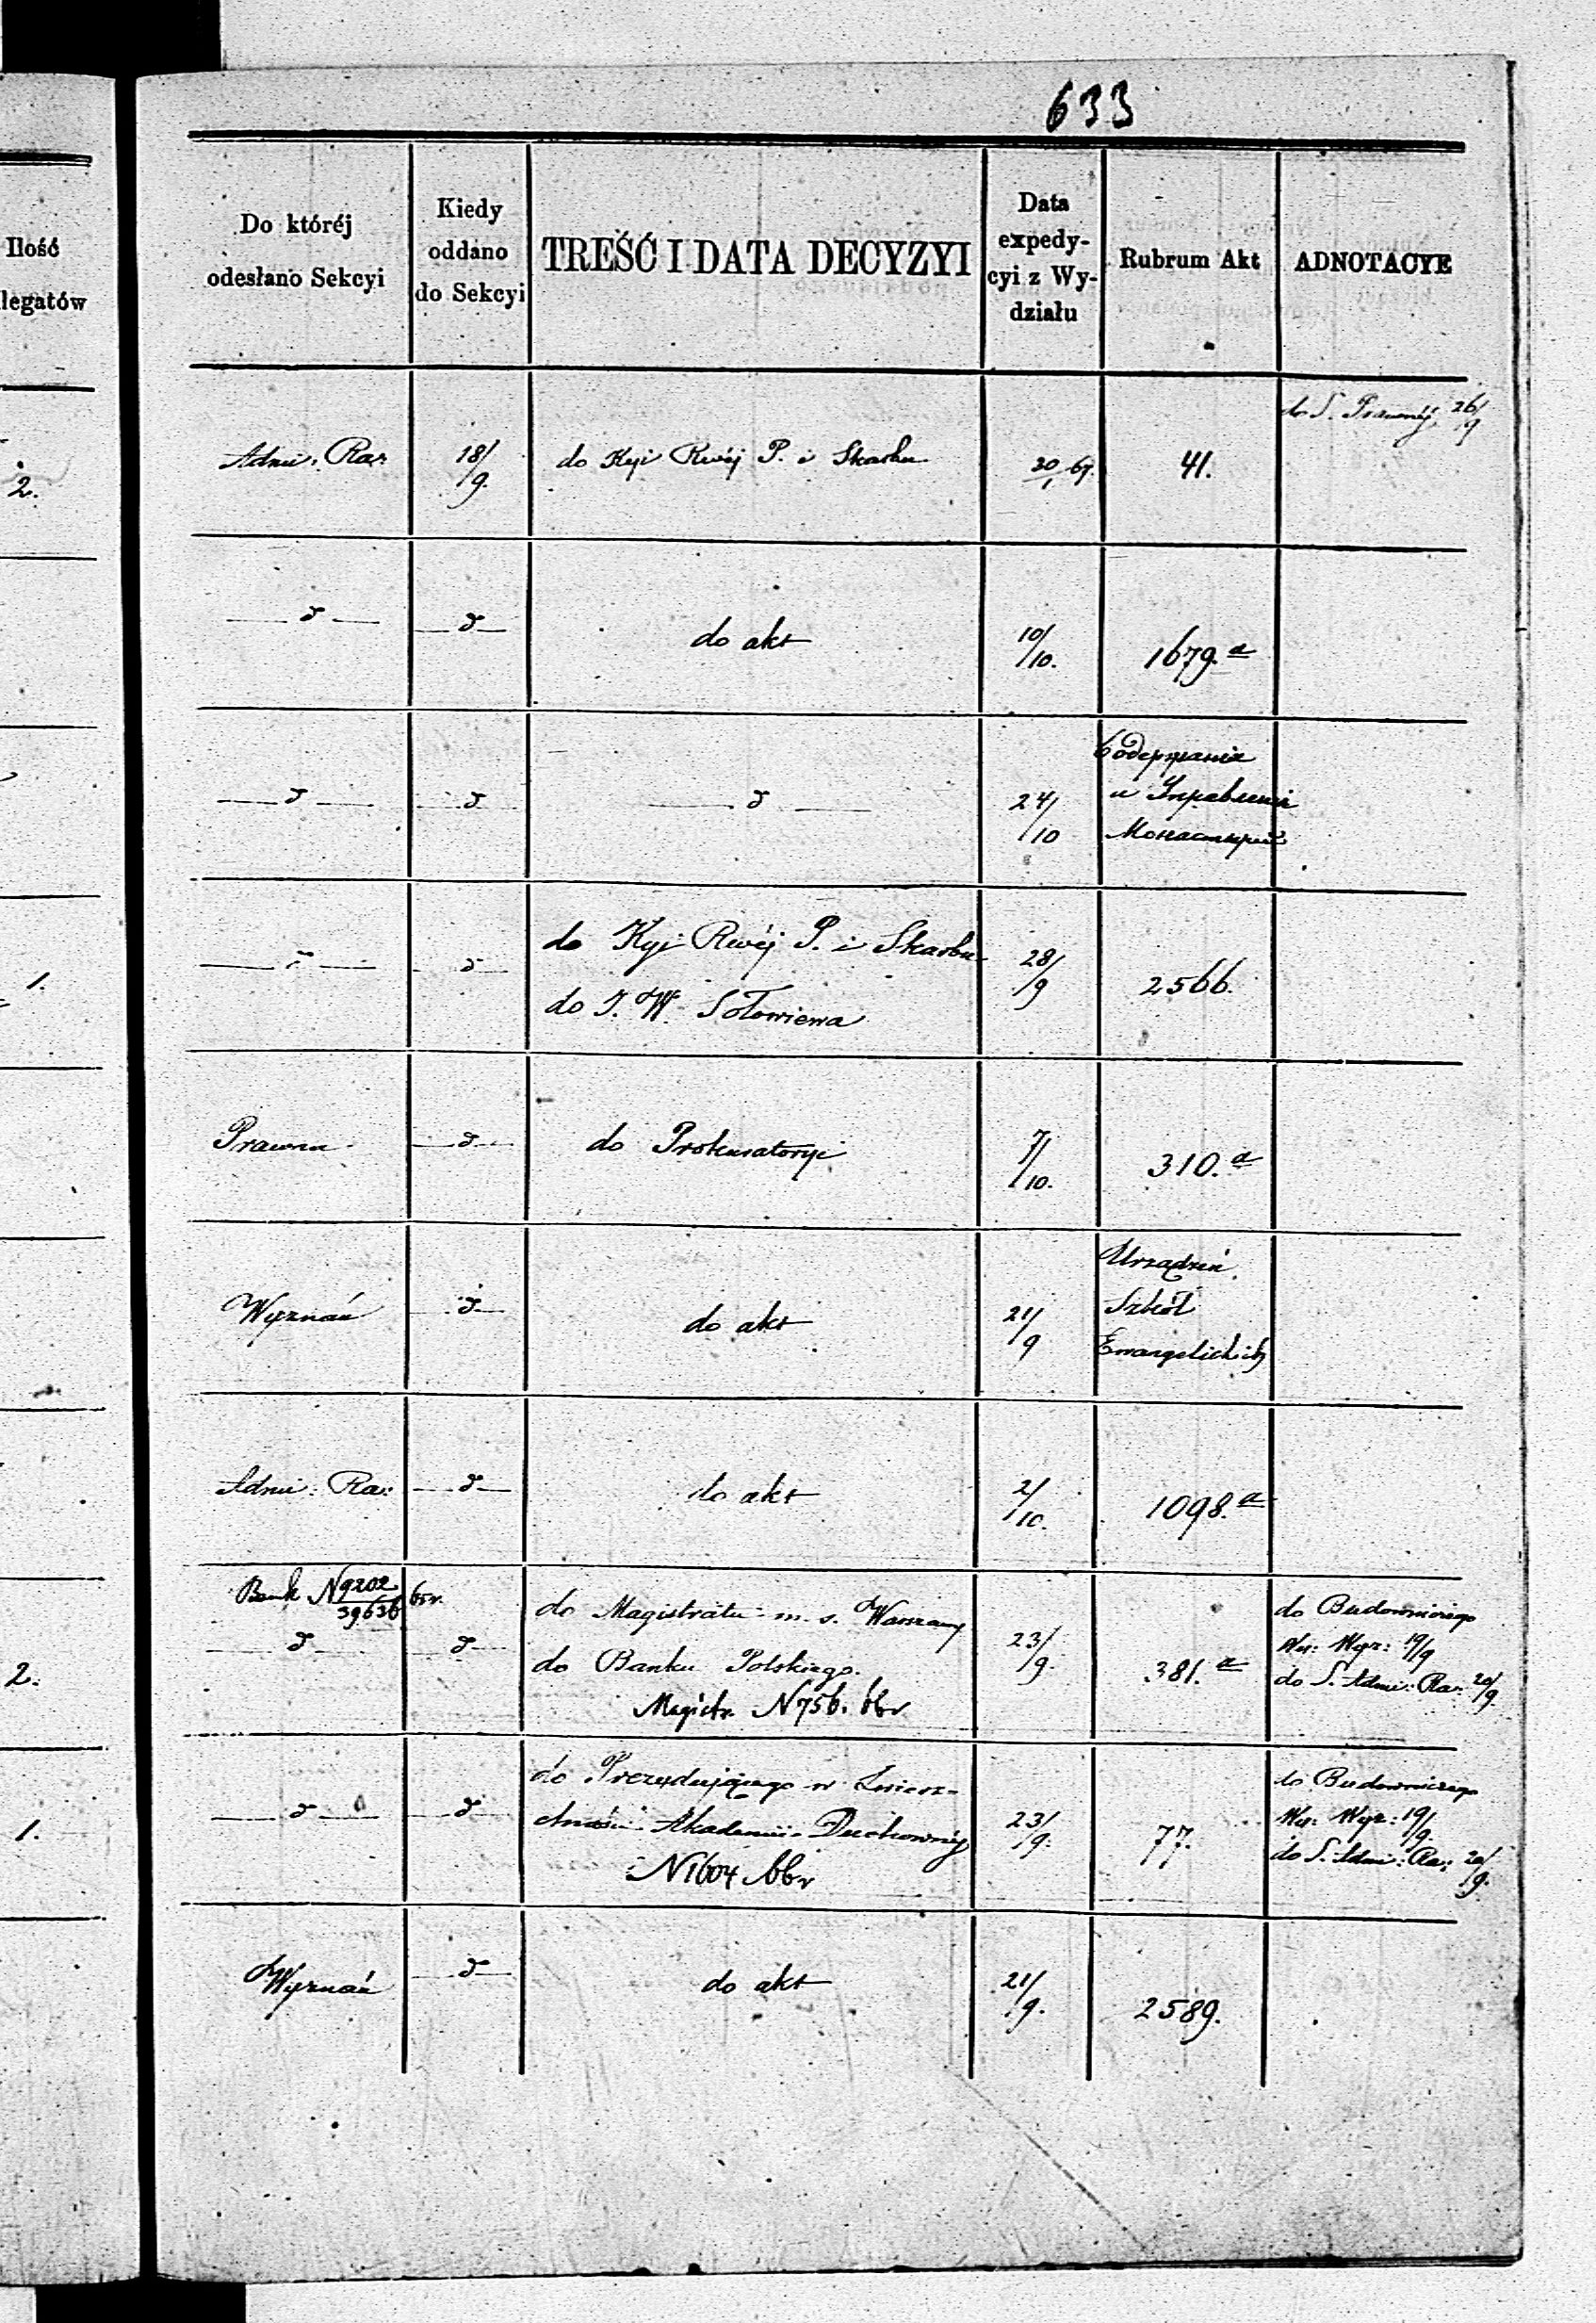 633
Ilość
legatów
Do któréj
odesłano Sekcyi
Kiedy
oddano
do Sekcyi
TREŚĆ I DATA DECYZYI
Data
expedy-
cyi z Wy-
działu
Rubrum Akt
ADNOTACYE
2.
Admi: Ra:
18/9
do Kyi Rwéj P. i Skarbu
30/1 67.
41.
do S. Prawnéj 26/9
d
d
do akt
10/10.
1679.a
d
d
d
24/10
Содержанія
и Управленія
Монастырей
1.
d
d
do Kyi Rwéj P. i Skarbu
do J. W. Sołowiewa
28/9
2566.
Prawna
d
do Prokuratoryi
7/10.
310.a
Wyznań
d
do akt
21/9
Urządzeń
Szkół
Ewangelickich
Admi: Ra:
d
do akt
2/10.
1098.a
2.
Bank N 9202/39636 65r.
d
d
do Magistratu m. s. Warszawy
do Banku Polskiego.
Magistr. N 756. 66r
23/9.
381.a
do Budowniczego
Wyz: 19/9
do S. Admi: Ra: 20/9
1.
d
d
do Prezydującego w Zwierz-
chności Akademii Duchownéj
N 1604 66r
23/9.
77.
do Budowniczego
Wyz: 19/9.
do S. Admi: Ra: 20/9.
Wyznań
d
do akt
21/9.
2589.